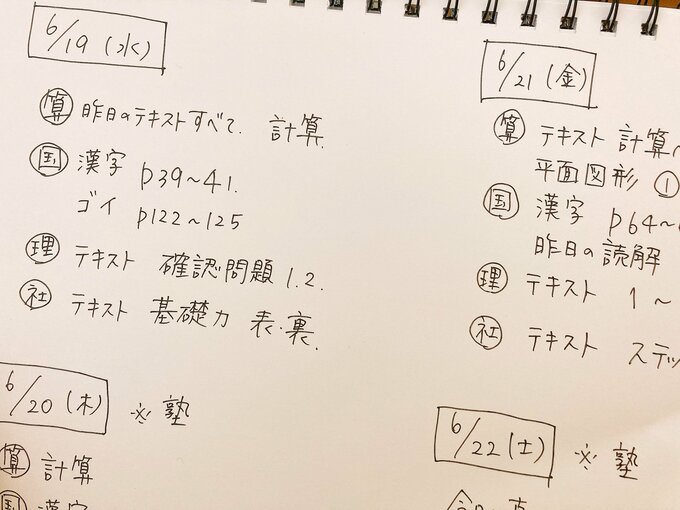 6/19(水)
㊢算 昨日のテキストすべて. 計算.
国 漢字 p39~41.
ゴイ p122~125
理 テキスト 確認問題 1.2.
社 テキスト 基礎力 表・裏.
6/20(木) ※塾
算 計算
国 漢字
6/21(金)
算 テキスト 計算
平面図形 ①
国 漢字 p64~
昨日の読解
理 テキスト 1~
社 テキスト ステッ
6/22(土) ※塾